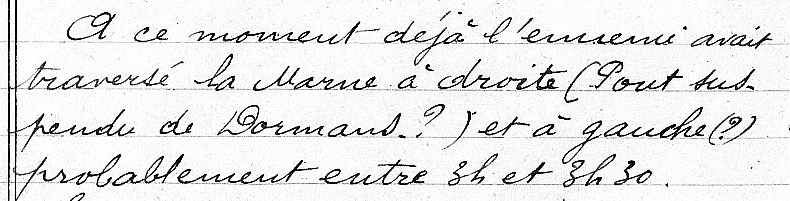 A ce moment déjà l'ennemi avait
traversé la Marne à droite (Pont sus-
pendu de Dormans-?) et à gauche (?)
probablement entre 3h et 3h30.